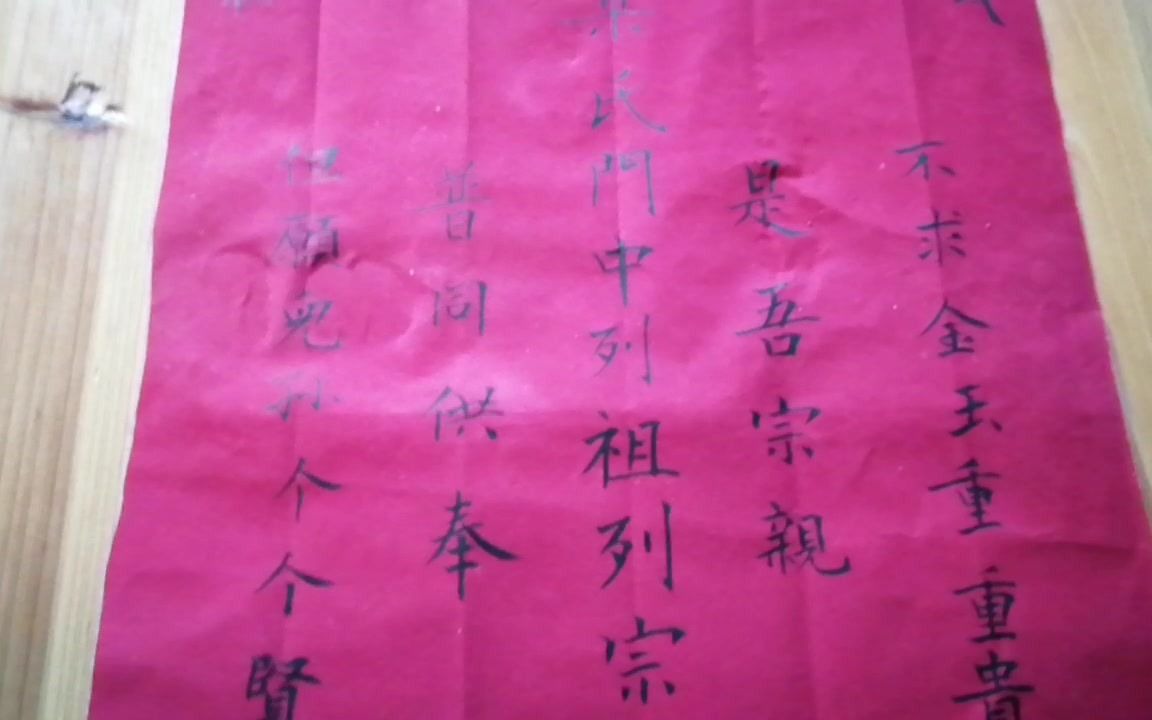 不求金玉重重貴
是吾宗親
氏門中列祖列宗
普同供奉
但願兒孫个个賢